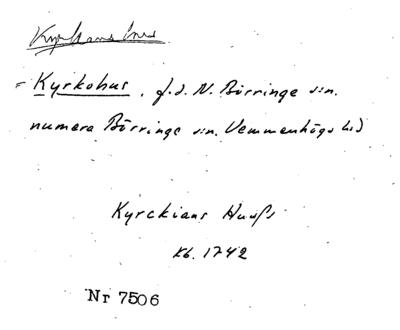 = Kyrkohus, f.d. N. Börringe sn.
numera Börringe sn. Vemmenhögs hd)
Kyrckians Huuss
Kb. 1742
Nr 7506